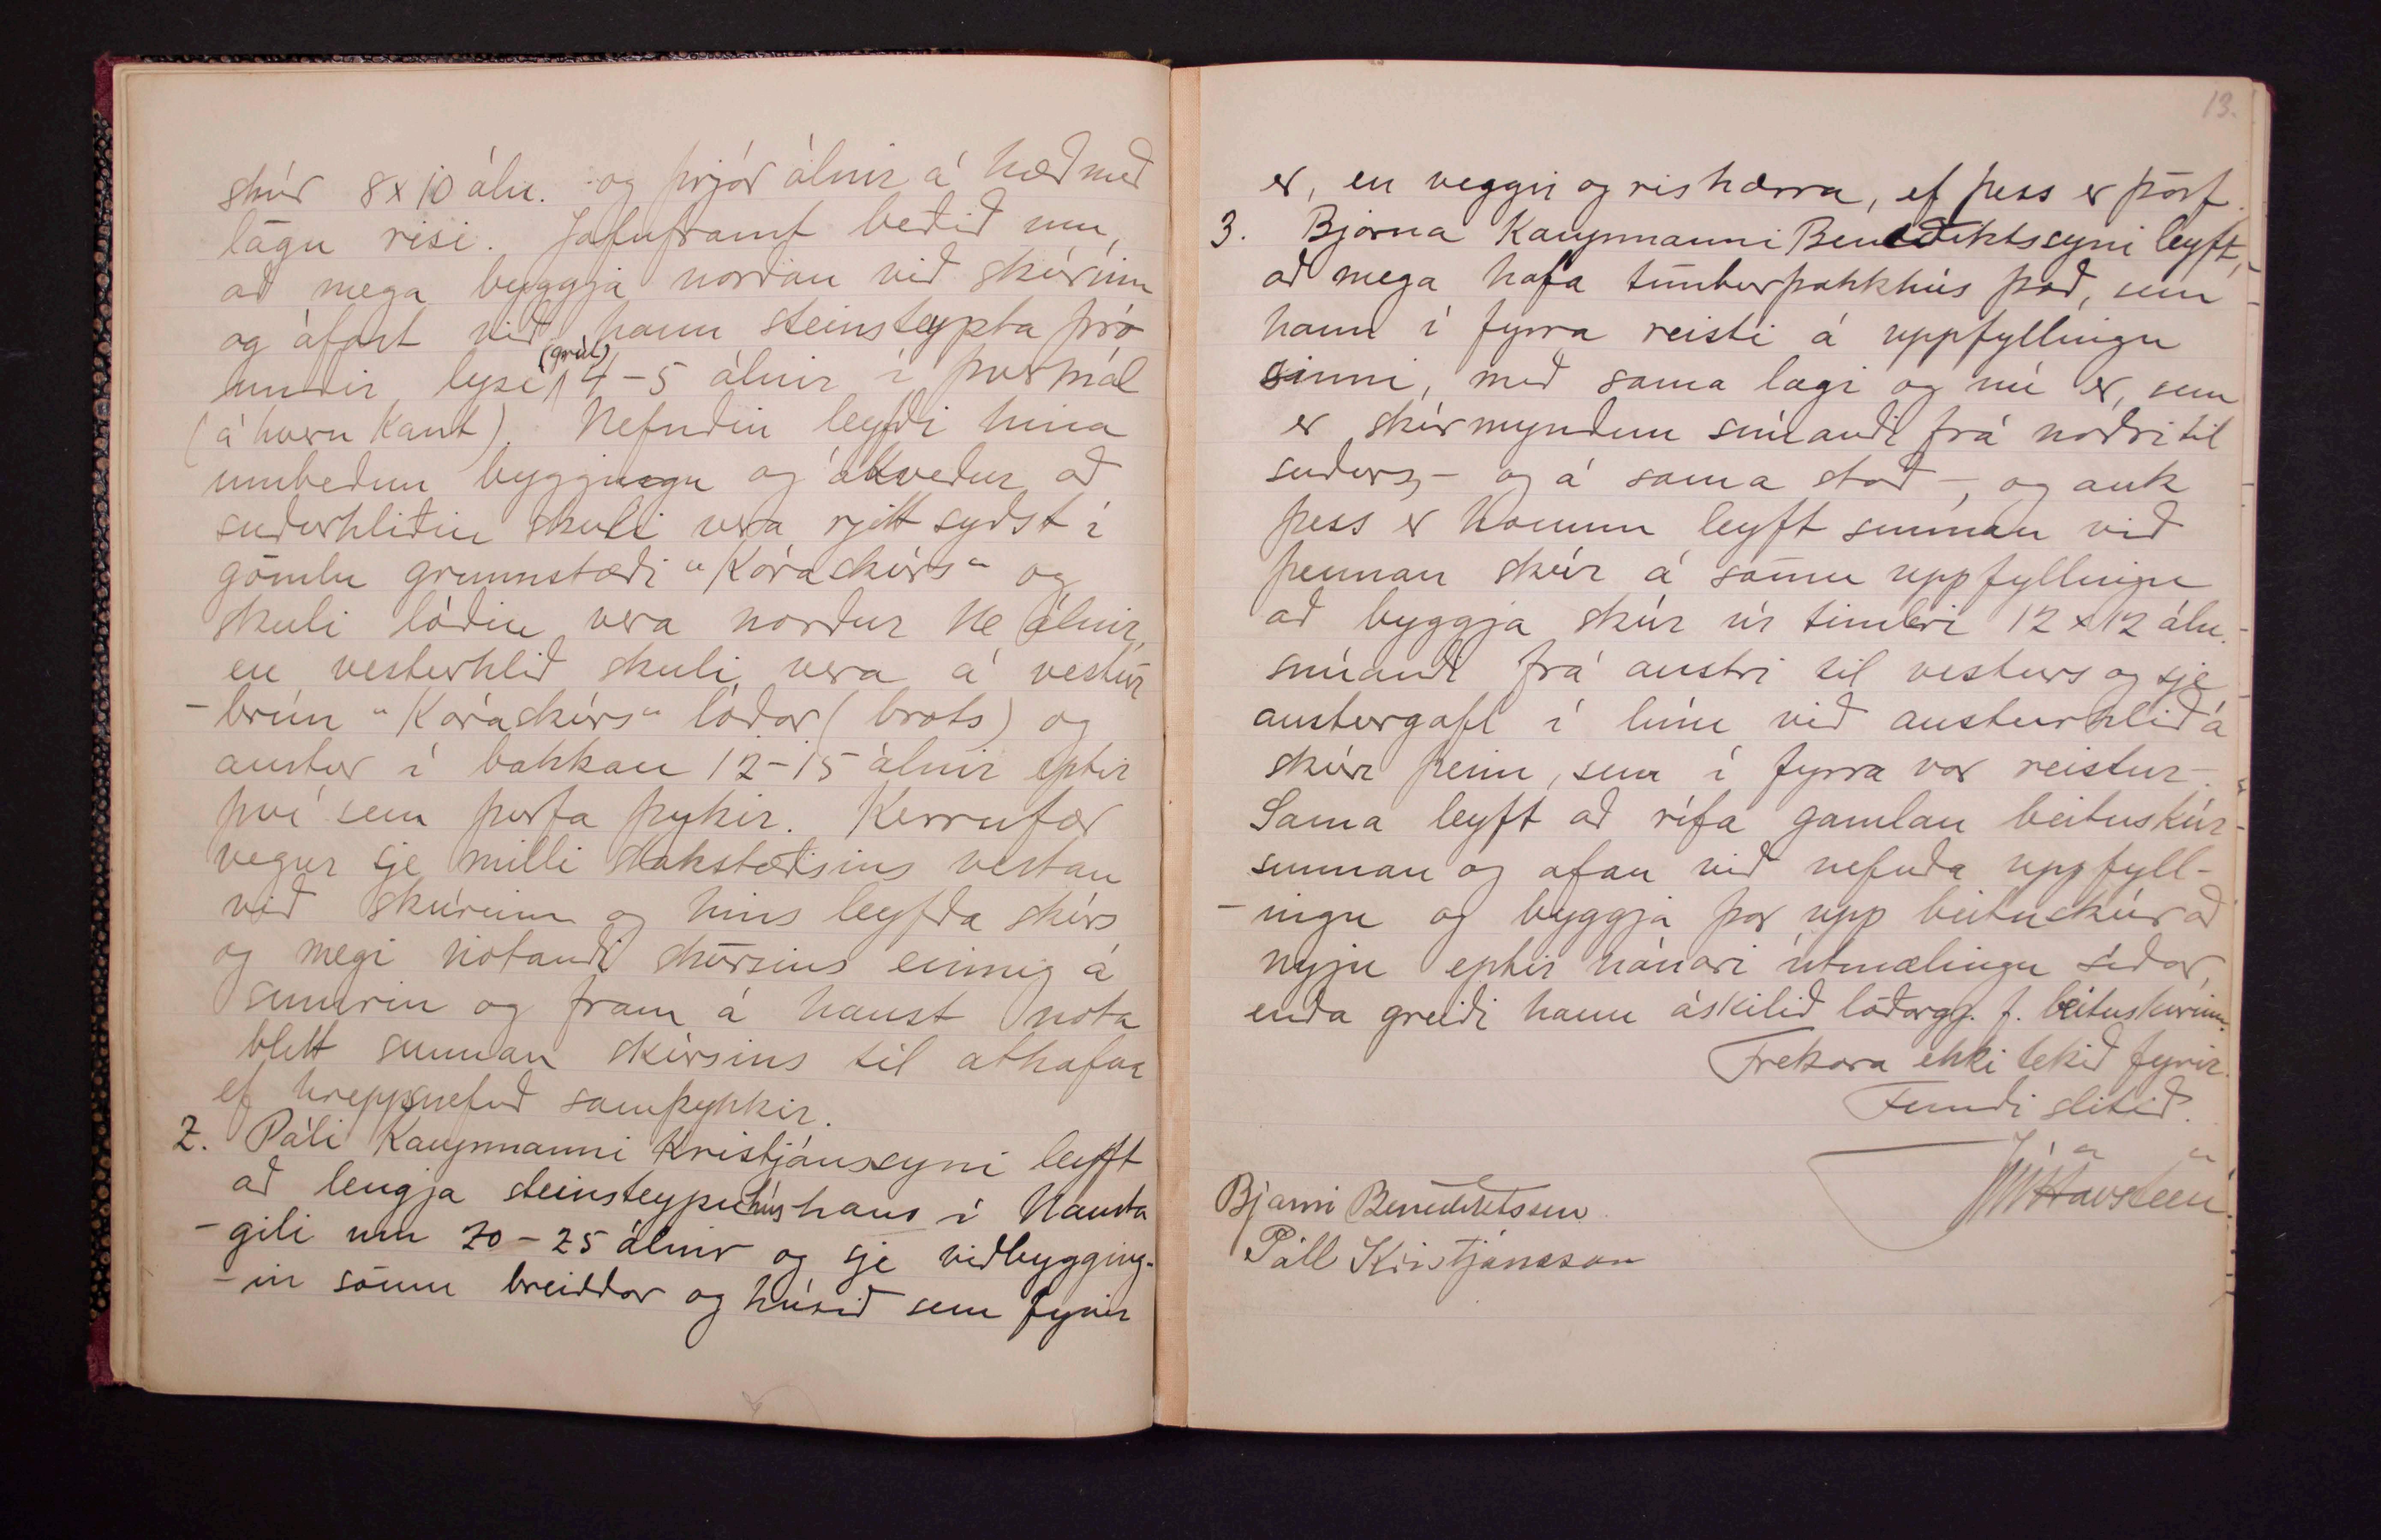 skúr 8 x 10 áln. og þrjár álnir á hæð með
lágu risi. Jafnframt beðið um,
að mega byggja norðan við skúrinn
og áfast við hann steinsteypta þró
undir lýsi (grút) 4-5 álnir í þvermál
(á hvern kant). Nefndin leyfði hina
umbeðnu byggingu og ákveður að
suðurhliðin skuli vera rjett syðst í
gömlu grunnstæði "Káraskúrs" og
skuli lóðin vera norður álnir,
en vesturhlið skuli vera á vestur
-brún "Káraskúrs" lóðar (brots) og
austur í bakkan 12-15 álnir eptir
því sem þurfa þykir. Kerrufær
vegur sje milli stakstæðisins vestan
við skúrinn og hins leyfða skúrs
og megi notandi skúrsins einnig á
sumrin og fram á haust nota
blett sunnan skúrsins til athafna
ef hreppsnefnd samþykkir.
2. Páli Kaupmanni Kristjánssyni leyft
að lengja steinsteypuhús hans í Nausta
-gili um 20-25 álnir og sje viðbygging-
-in sömu breiddar og húsið sem fyrir
13.
er, en veggir og ris hærra, ef þess er þörf.
3. Bjarna Kaupmanni Benediktssyni leyft,
að mega hafa timburpakkhús það, sem
hann í fyrra reisti á uppfyllingu
sinni, með sama lagi og nú er, sem
er skúrmyndun snúandi frá norðri til
suðurs, - og á sama stað -, og auk
þess er honum leyft sunnan við
þennan skúr á sömu uppfyllingu
að byggja skúr úr timbri 12 x 12 áln.
snúandi frá austri til vesturs og sje
austurgafl í línu við austurhlið á
skúr þeim, sem í fyrra var reistur.
Sama leyft að rífa gamlan beituskúr
sunnan og ofan við nefnda uppfyll-
-ingu og byggja þar upp beituskúr að
nýju eptir nánari útmælingu síðar,
enda greiði hann áskilið lóðargj. f. beituskúrinn.
Frekara ekki tekið fyrir.
Fundi slitið.
JVHavsteen
Bjarni Benediktsson
Páll Kristjánsson